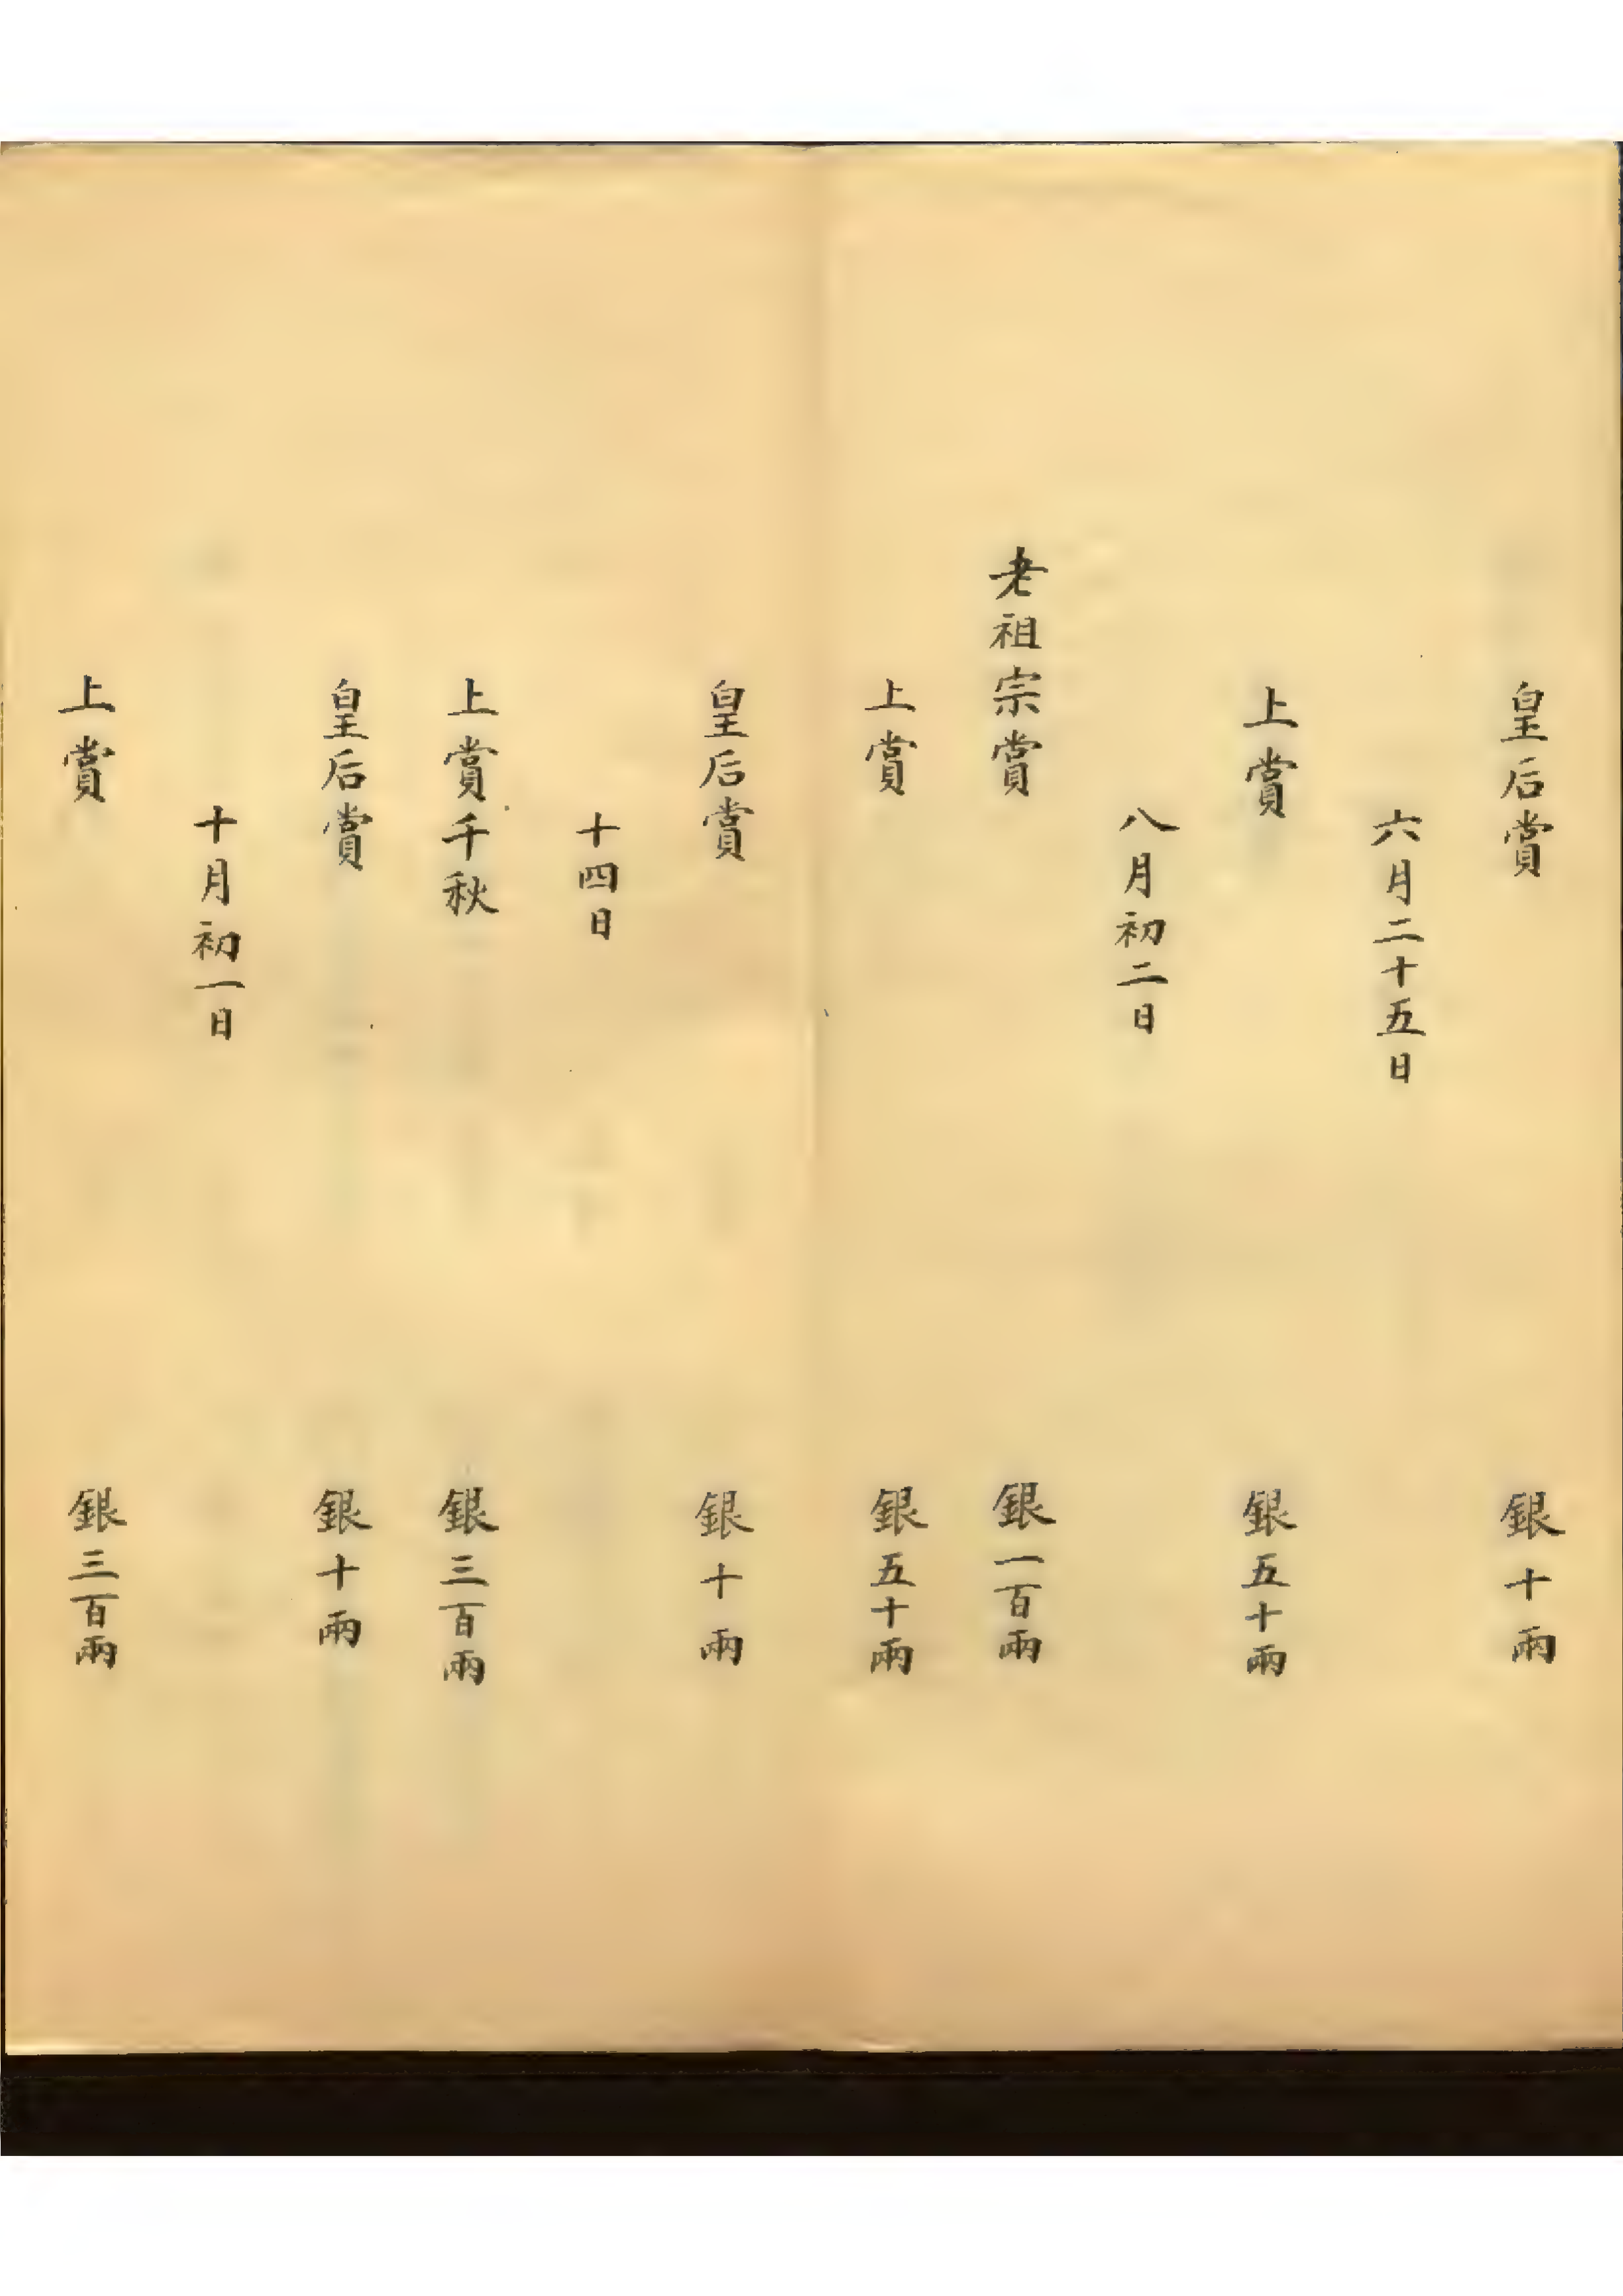 皇后賞　銀十兩
六月二十五日
上賞　銀五十兩
八月初二日
老祖宗賞　銀一百兩
上賞　銀五十兩
皇后賞　銀十兩
十四日
上賞千秋　銀三百兩
皇后賞　銀十兩
十月初一日
上賞　銀三百兩